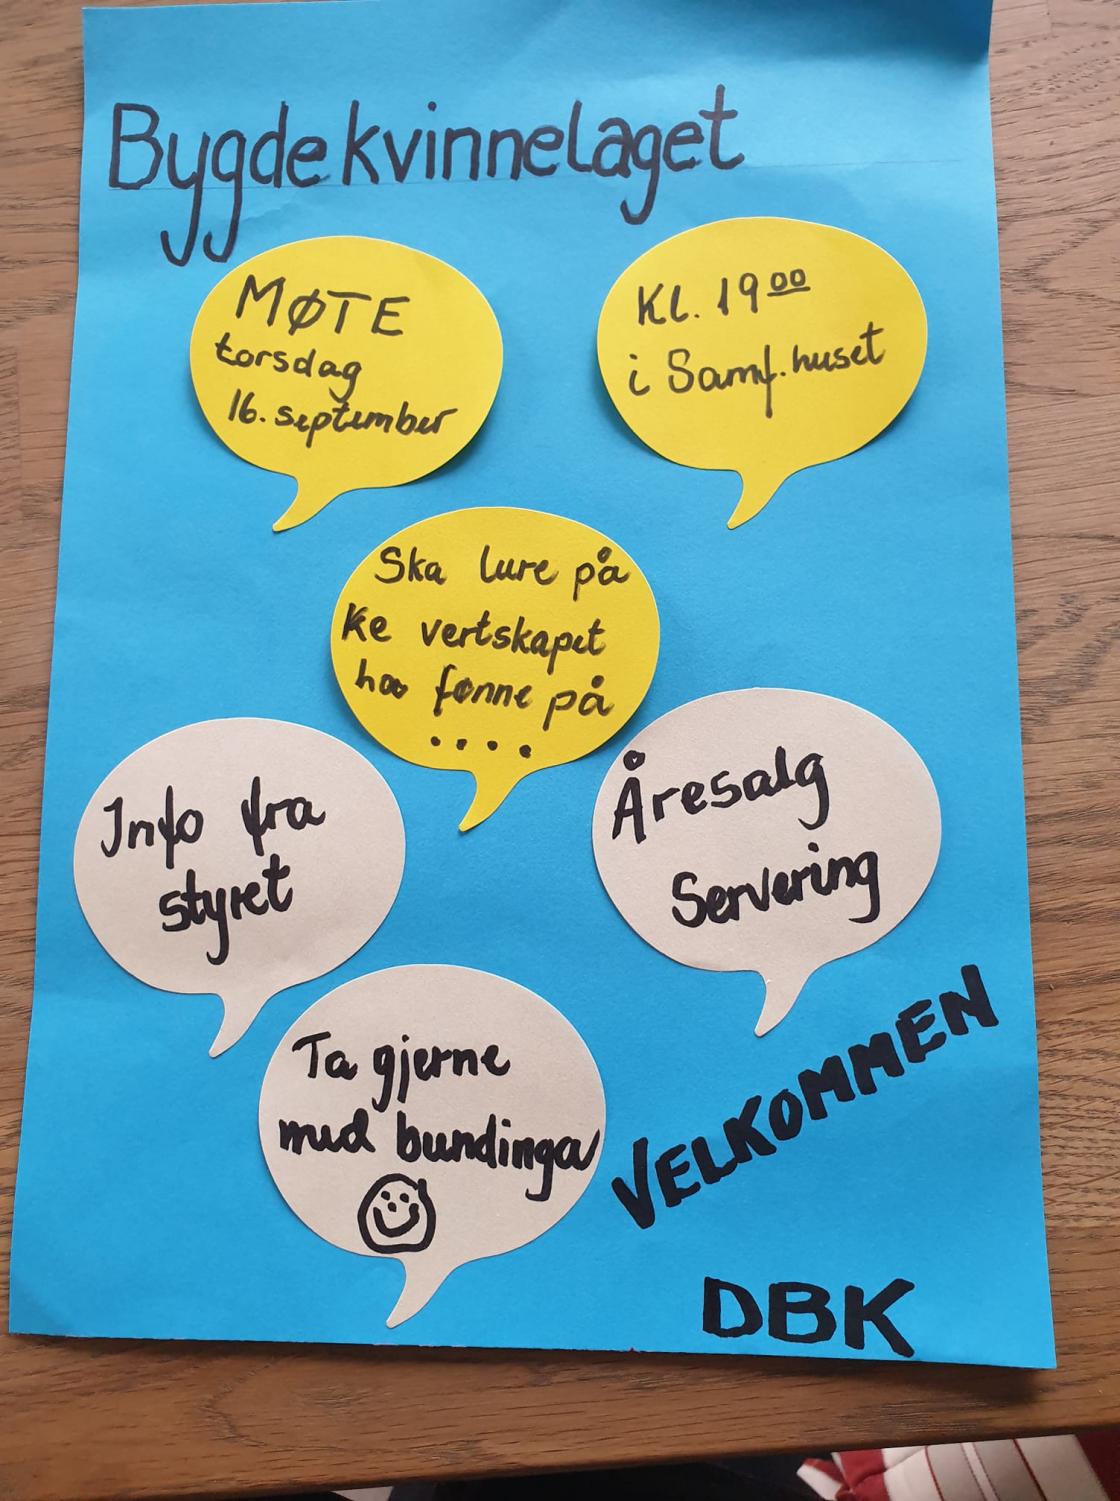 Bygdekvinnelaget
MØTE
torsdag
16. september
Kl. 19 00
i Samf.huset
Ska lure på
ke vertskapet
ha fønne på
....
Info fra
styret
Åresalg
Servering
Ta gjerne
med bundinga
VELKOMMEN
DBK